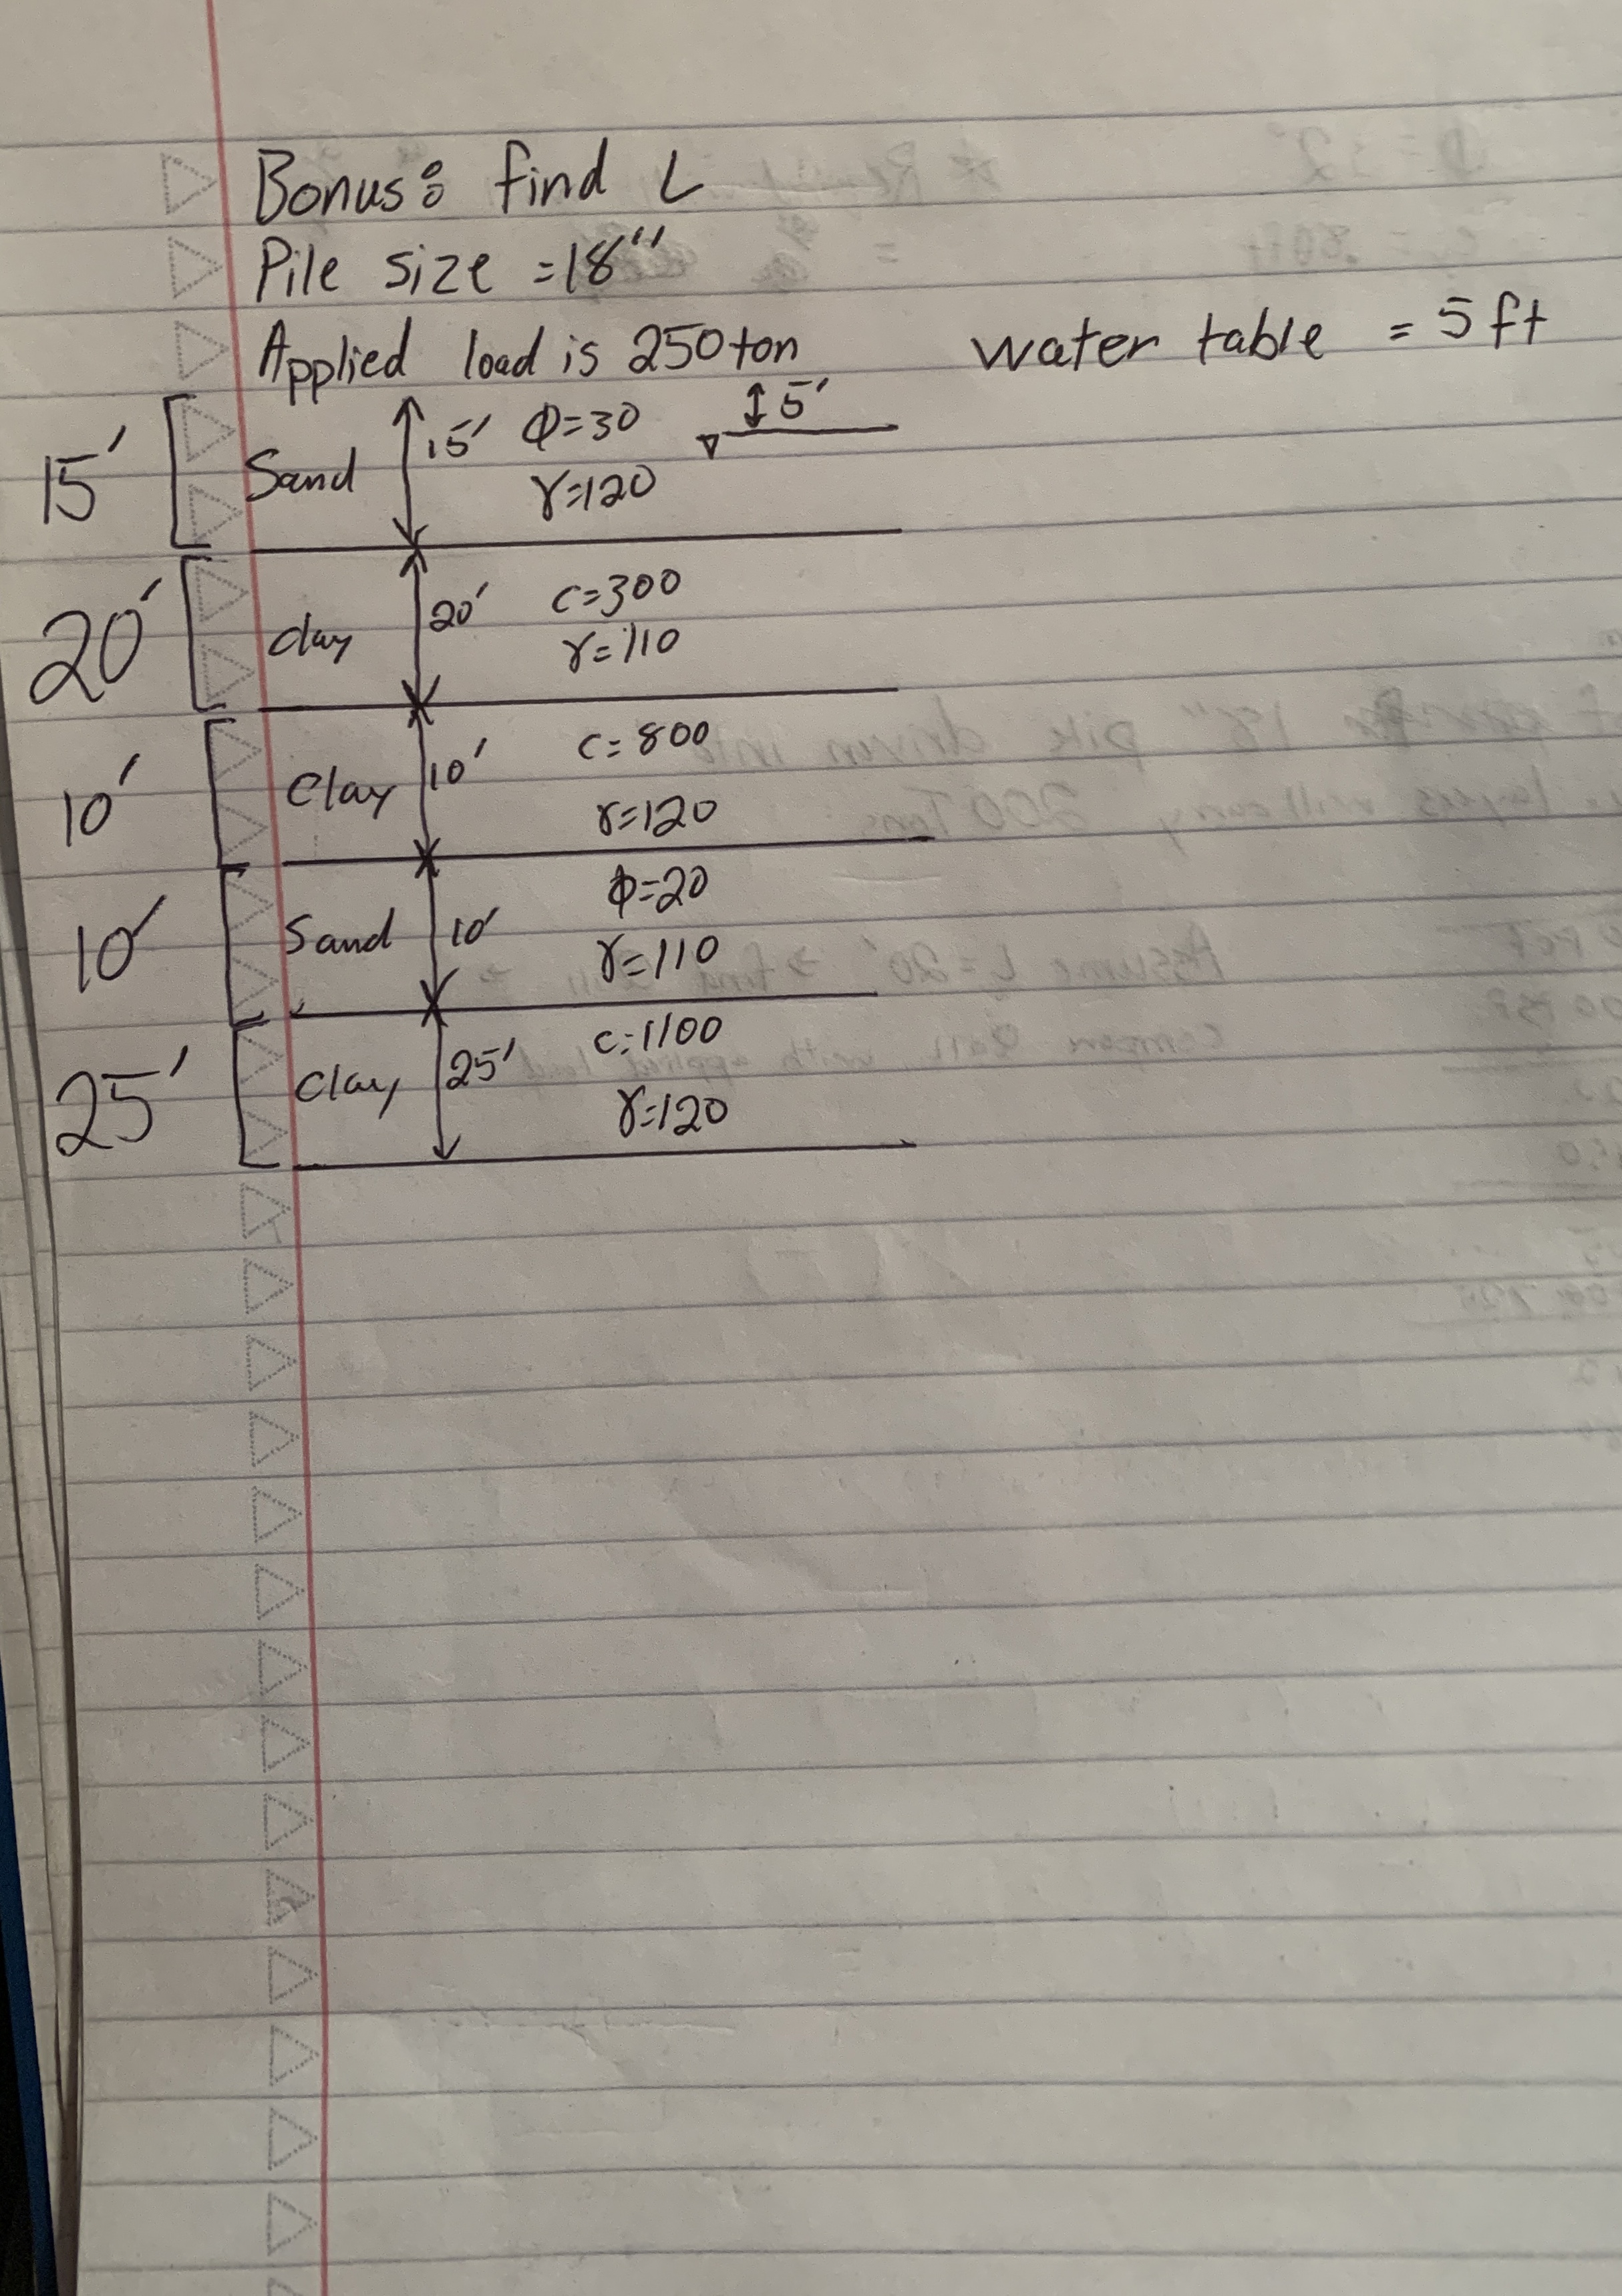 Bonus: find L
Pile size = 18"
Applied load is 250 ton water table = 5 ft
15' Sand 15' Φ=30 5'
γ=120
20' clay 20' c=300
γ=110
10' Clay 10' c=800
γ=120
10' Sand 10' Φ=20
γ=110
25' Clay 25' c=1100
γ=120